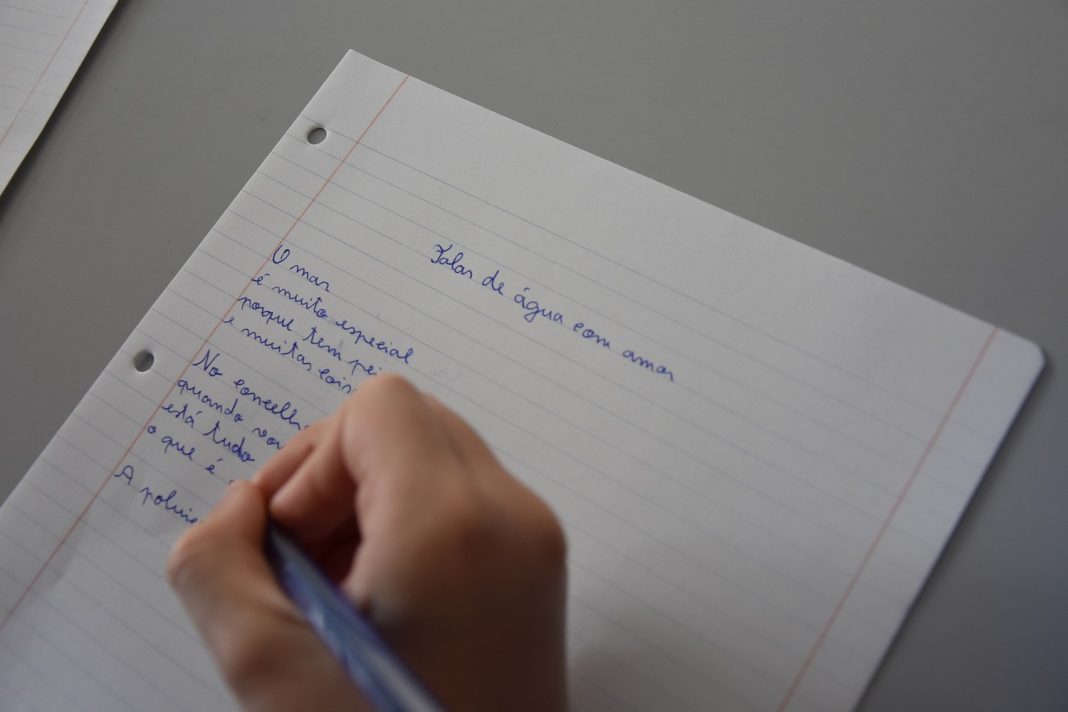 Falar de água com amor
O mar
é muito especial
porque tem pei
e muitas cois
No concelh
quando vou
está tudo
o que é
A polui